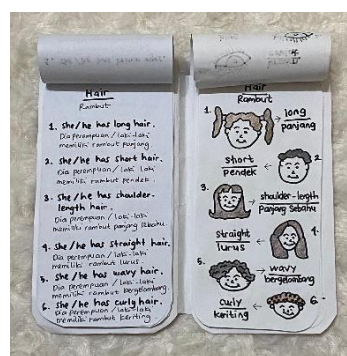 Hair
Rambut
1. She/he has long hair.
Dia perempuan / laki-laki
memiliki rambut panjang.
2. She/he has short hair.
Dia perempuan / laki-laki
memiliki rambut pendek.
3. She/he has shoulder-
length hair.
Dia perempuan / laki-laki
memiliki rambut panjang sebahu.
4. She/he has straight hair.
Dia perempuan / laki-laki
memiliki rambut lurus.
5. She/he has wavy hair.
Dia perempuan / laki-laki
memiliki rambut bergelombang.
6. She/he has curly hair.
Dia perempuan / laki-laki
memiliki rambut keriting
Hair
Rambut
1.
long
panjang
short
pendek
2.
3.
shoulder-length
panjang sebahu
straight
lurus
4.
5.
wavy
bergelombang
curly
keriting
6.